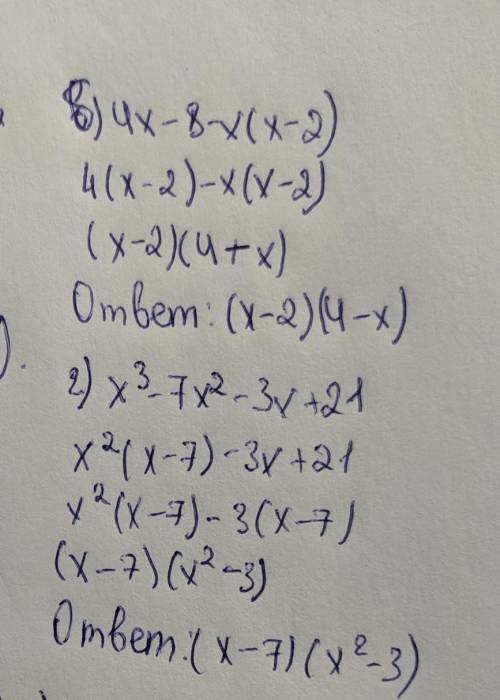 в) 4x-8-x(x-2)
4(x-2)-x(x-2)
(x-2)(4+x)
Ответ: (x-2)(4-x)
г) x³-7x²-3x+21
x²(x-7)-3x+21
x²(x-7)-3(x-7)
(x-7)(x²-3)
Ответ: (x-7)(x²-3)